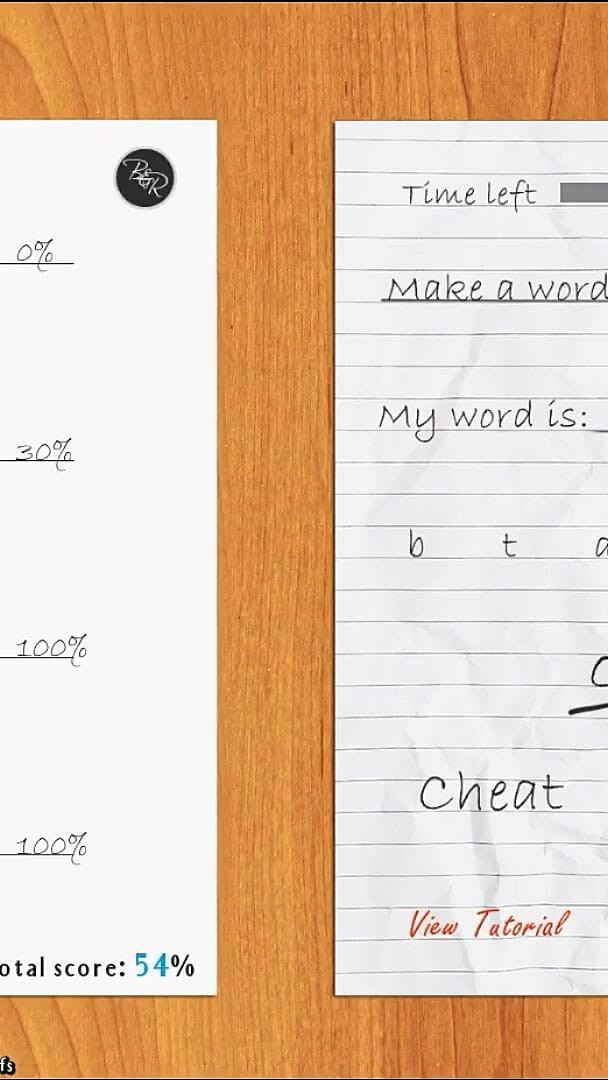 0%
30%
100%
100%
otal score: 54%
fs
Time left
Make a word
My word is:
b t a
C
Cheat
View Tutorial